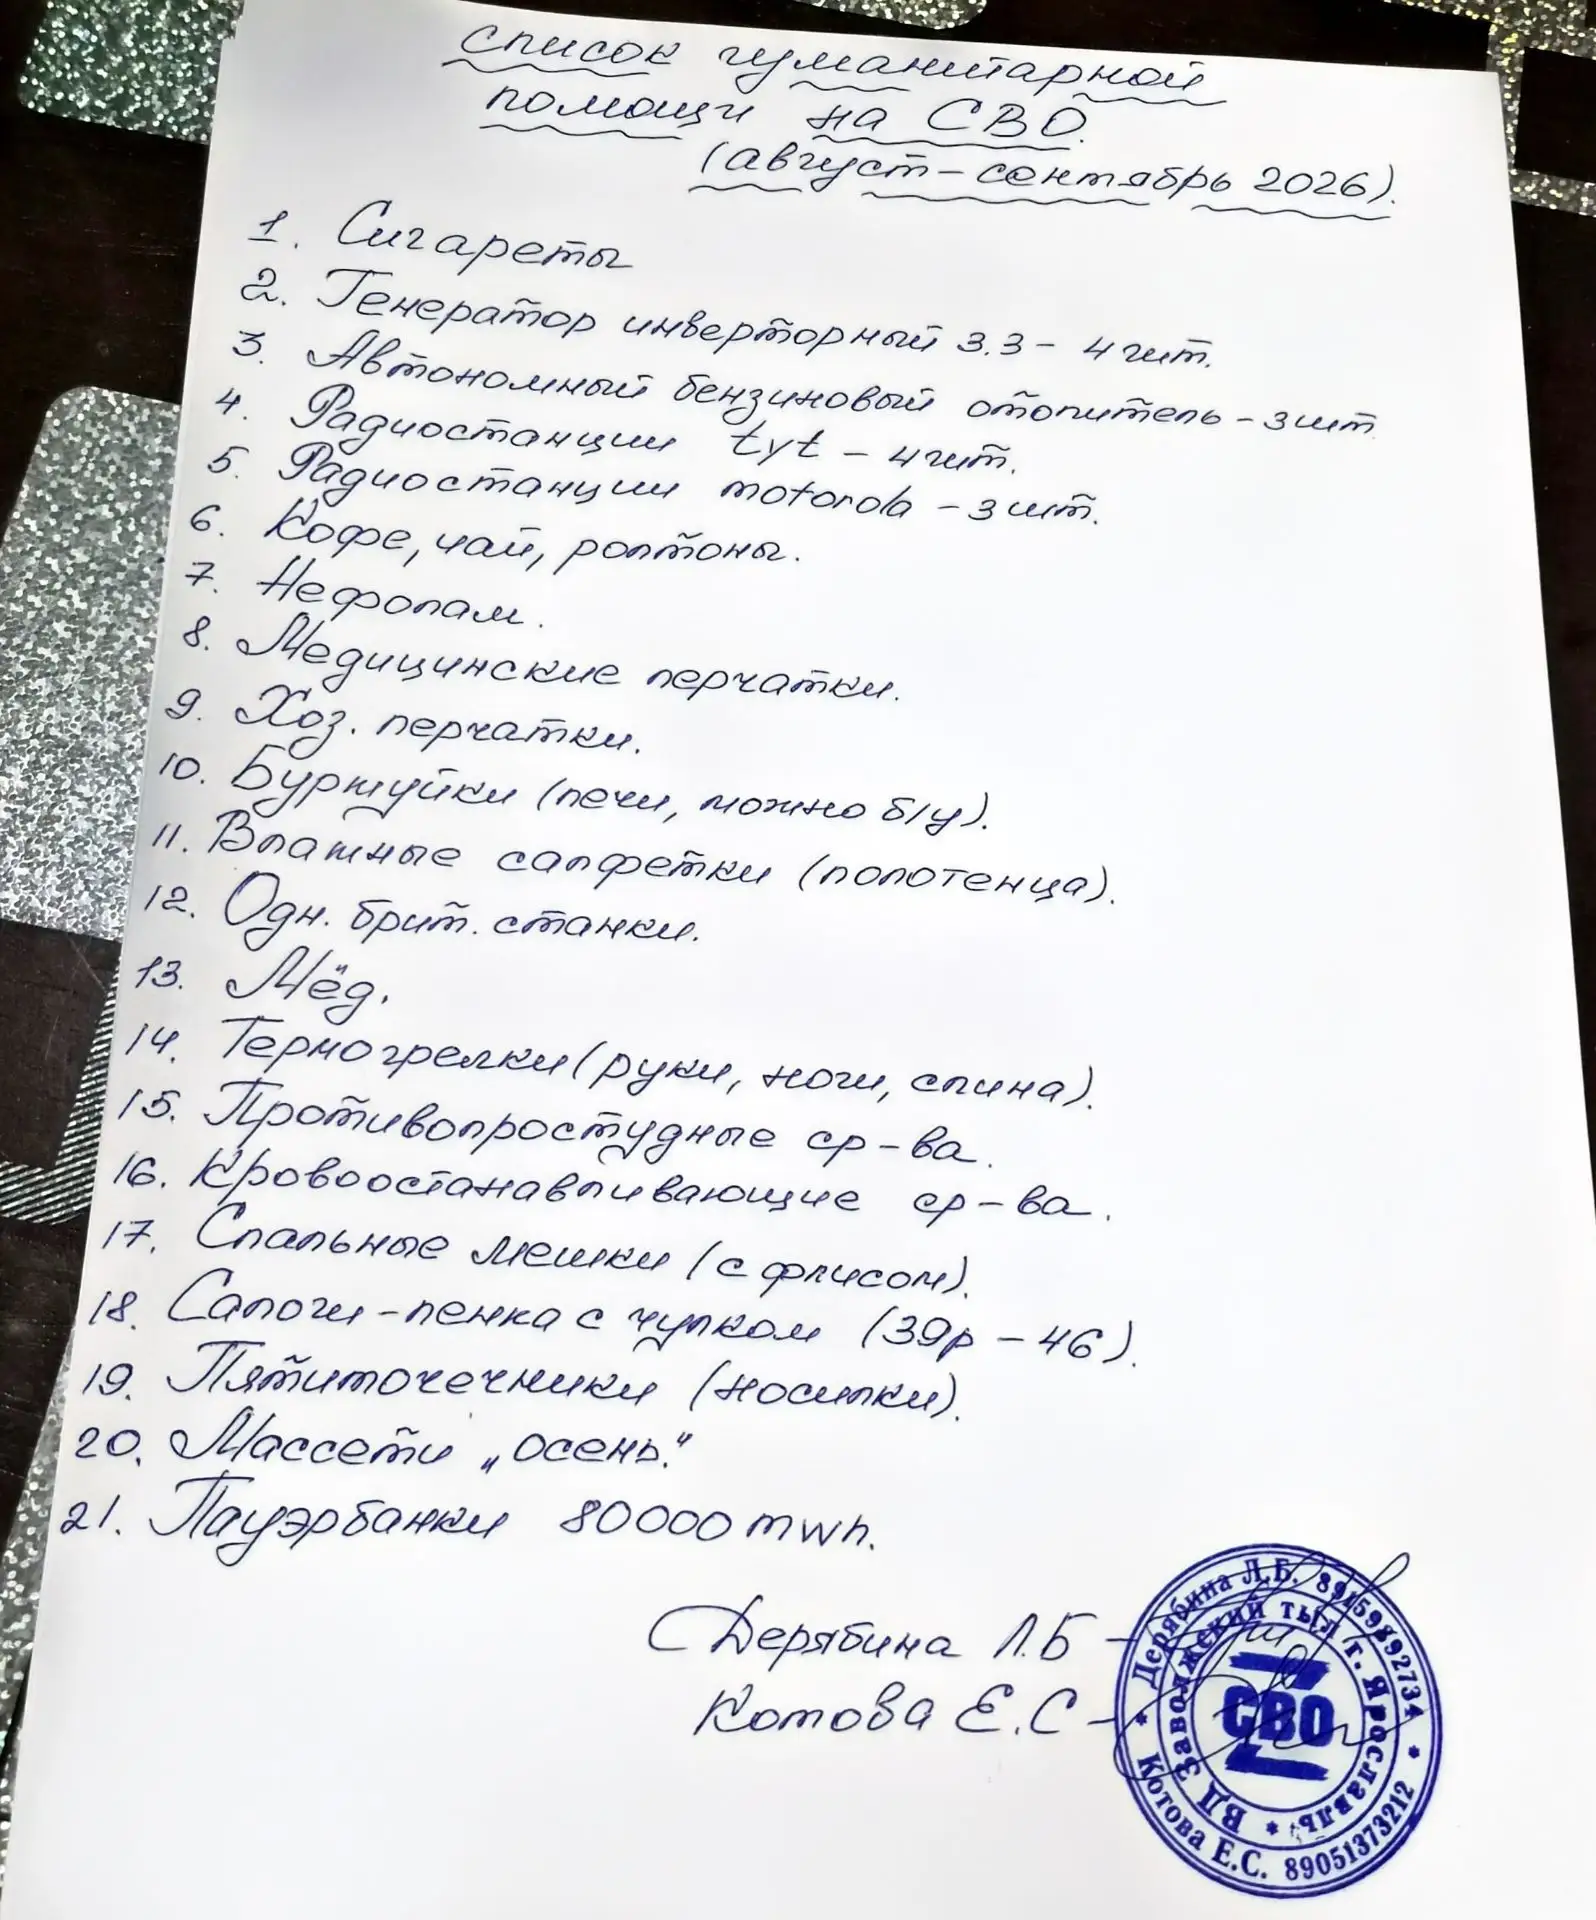 список гуманитарной
помощи на СВО.
(август-сентябрь 2026).
1. Сигареты
2. Генератор инверторный 3.3 - 4 шт.
3. Автономный бензиновый отопитель - 3 шт
4. Радиостанции tyt - 4 шт.
5. Радиостанции motorola - 3 шт.
6. Кофе, чай, ролтоны.
7. Нефопам.
8. Медицинские перчатки.
9. Хоз. перчатки.
10. Буржуйки (печи, можно б/у).
11. Влажные салфетки (полотенца).
12. Одн. брит. станки.
13. Мёд.
14. Термогрелки (руки, ноги, спина).
15. Противопростудные ср-ва.
16. Кровоостанавливающие ср-ва.
17. Спальные мешки (с флисом).
18. Сапоги-пенка с чулком (39р - 46).
19. Пятиточечники (носилки).
20. Массети „осень."
21. Пауэрбанки 80000 mwh.
Дерябина Л.Б -
Котова Е.С -
Дерябина Л.Б. 89159892734
ВД Заволжский тыл г. Ярославль
СВО
Котова Е.С. 89051373212